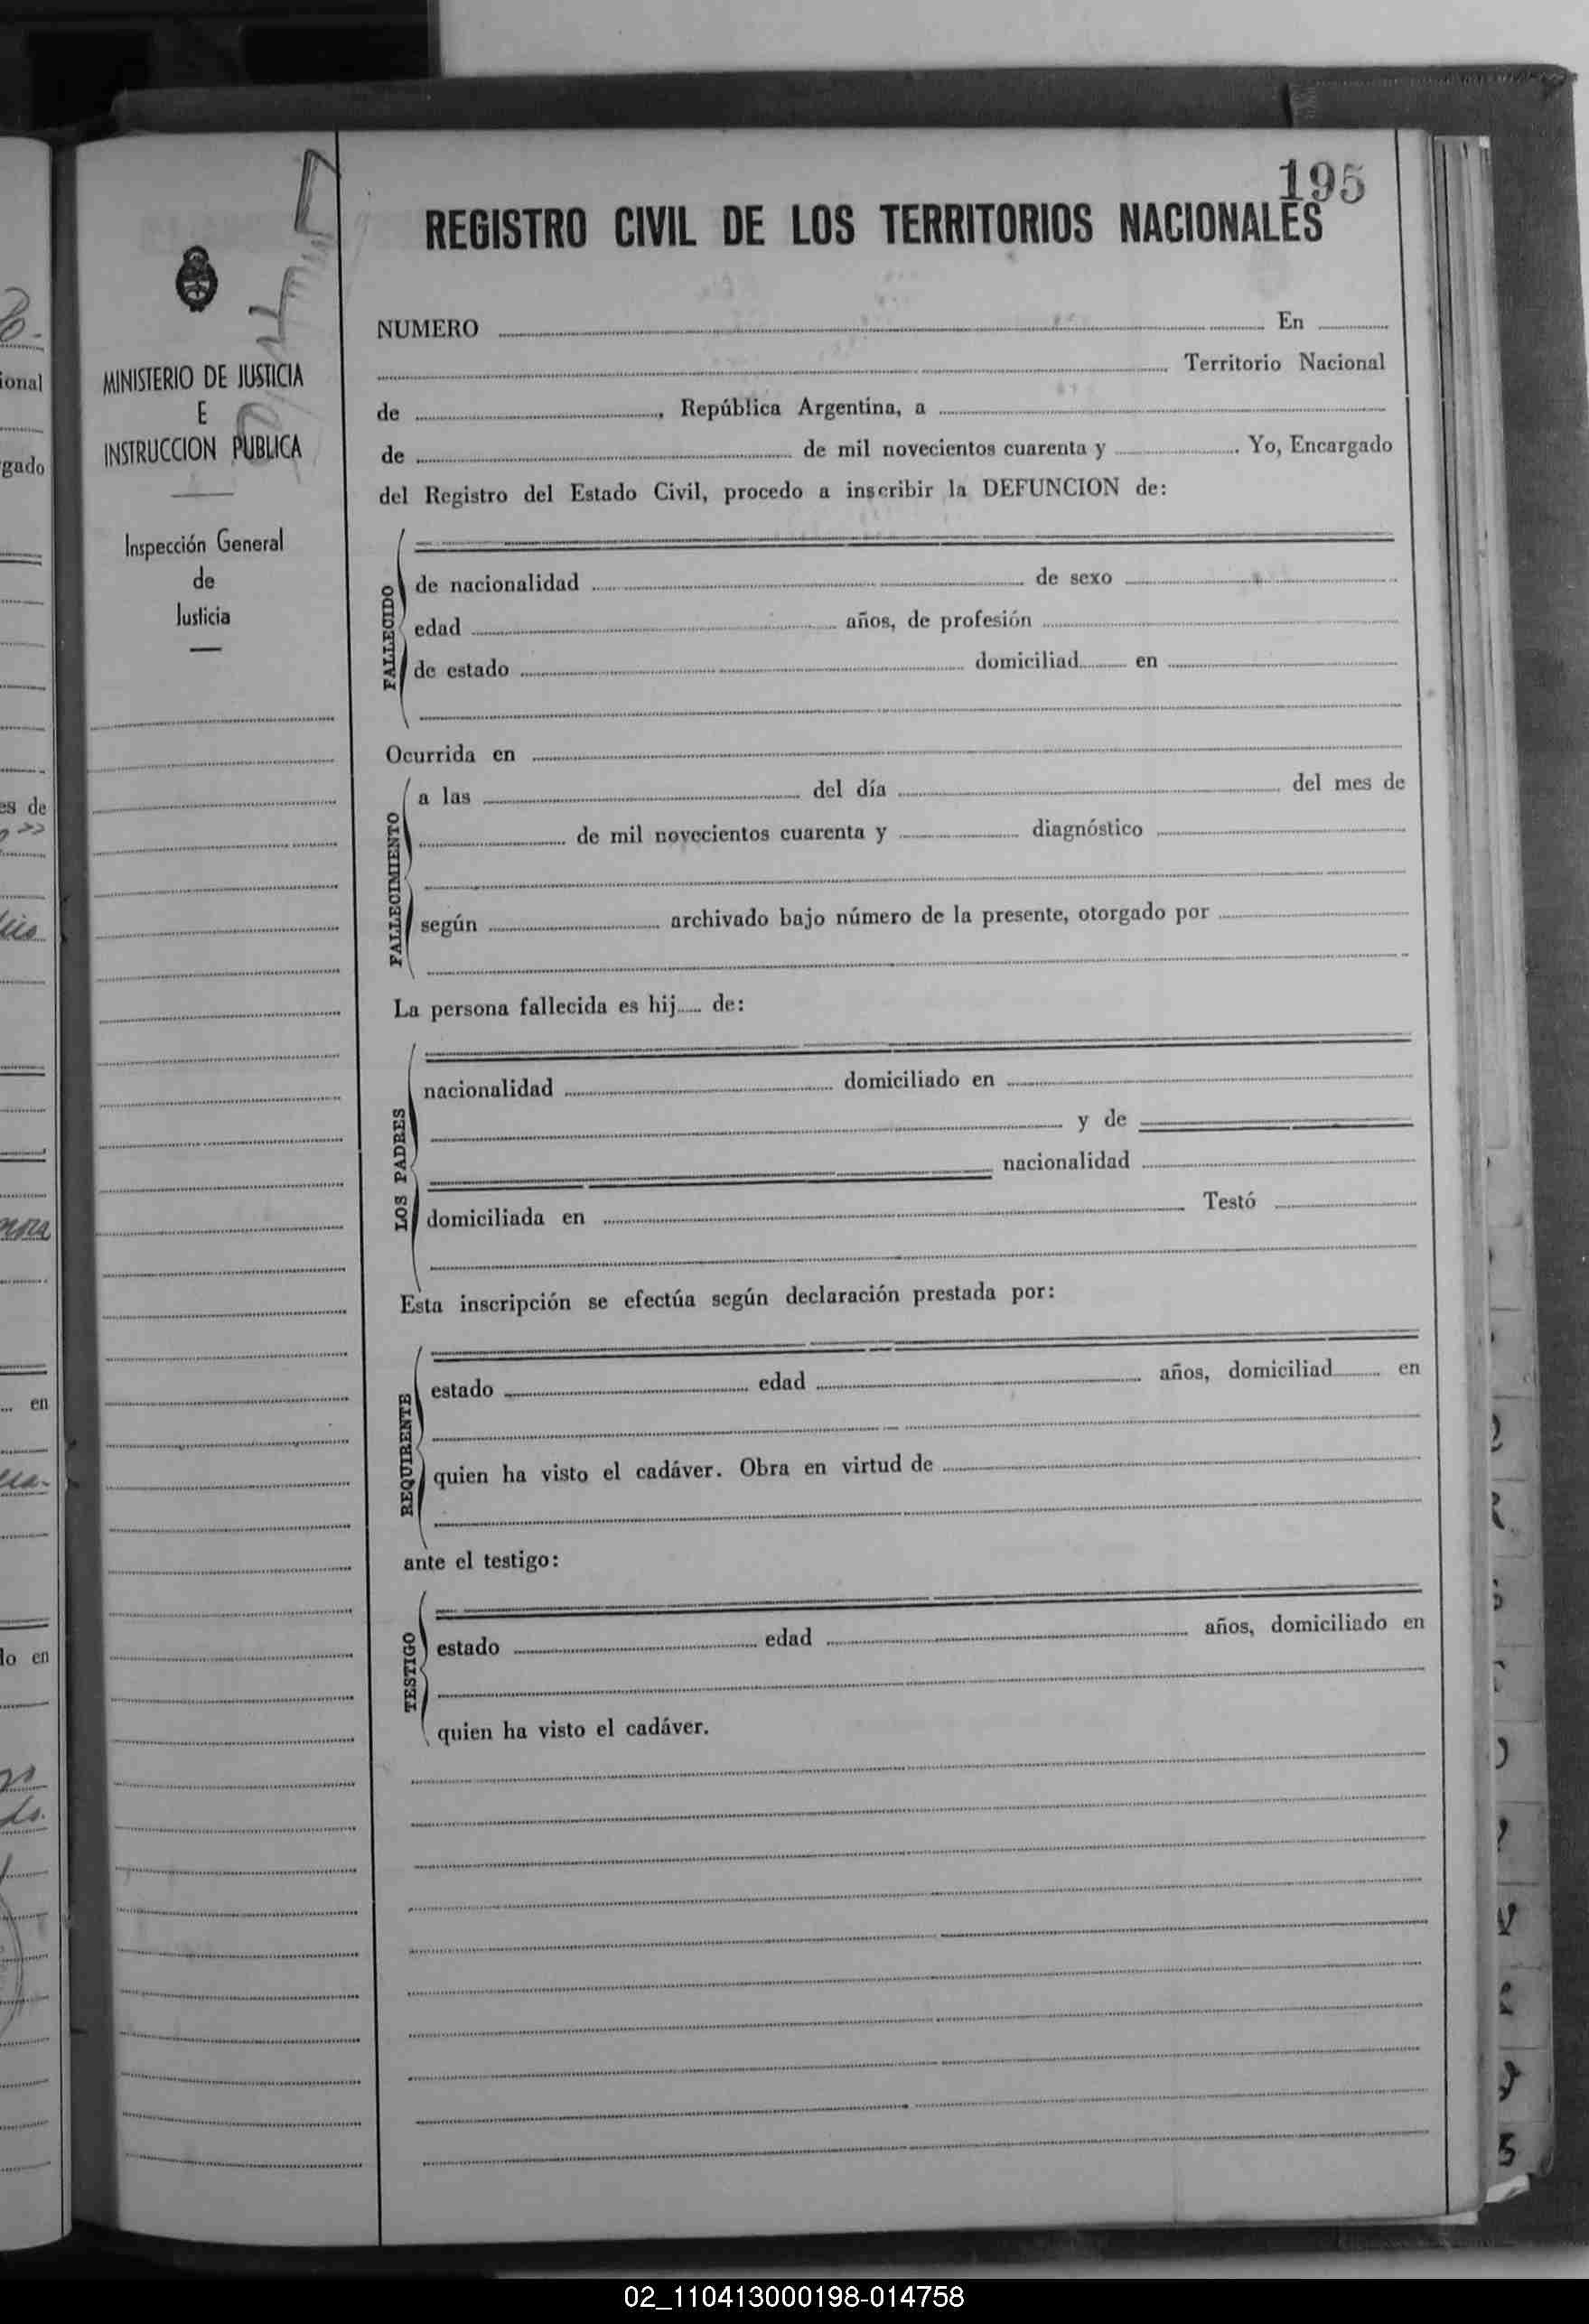 195
REGISTRO CIVIL DE LOS TERRITORIOS NACIONALES
MINISTERIO DE JUSTICIA
E
INSTRUCCION PUBLICA
Inspección General
de
Justicia
NUMERO En
Territorio Nacional
de , República Argentina, a
de de mil novecientos cuarenta y . Yo, Encargado
del Registro del Estado Civil, procedo a inscribir la DEFUNCION de:
FALLECIDO
de nacionalidad de sexo
edad años, de profesión
de estado domiciliad en
Ocurrida en
FALLECIMIENTO
a las del día del mes de
de mil novecientos cuarenta y diagnóstico
según archivado bajo número de la presente, otorgado por
La persona fallecida es hij..... de:
LOS PADRES
nacionalidad domiciliado en
y de
nacionalidad
domiciliada en Testó
Esta inscripción se efectúa según declaración prestada por:
REQUIRENTE
estado edad años, domiciliad en
quien ha visto el cadáver. Obra en virtud de
ante el testigo:
TESTIGO
estado edad años, domiciliado en
quien ha visto el cadáver.
ional
gado
es de
en
lo en
02_110413000198-014758